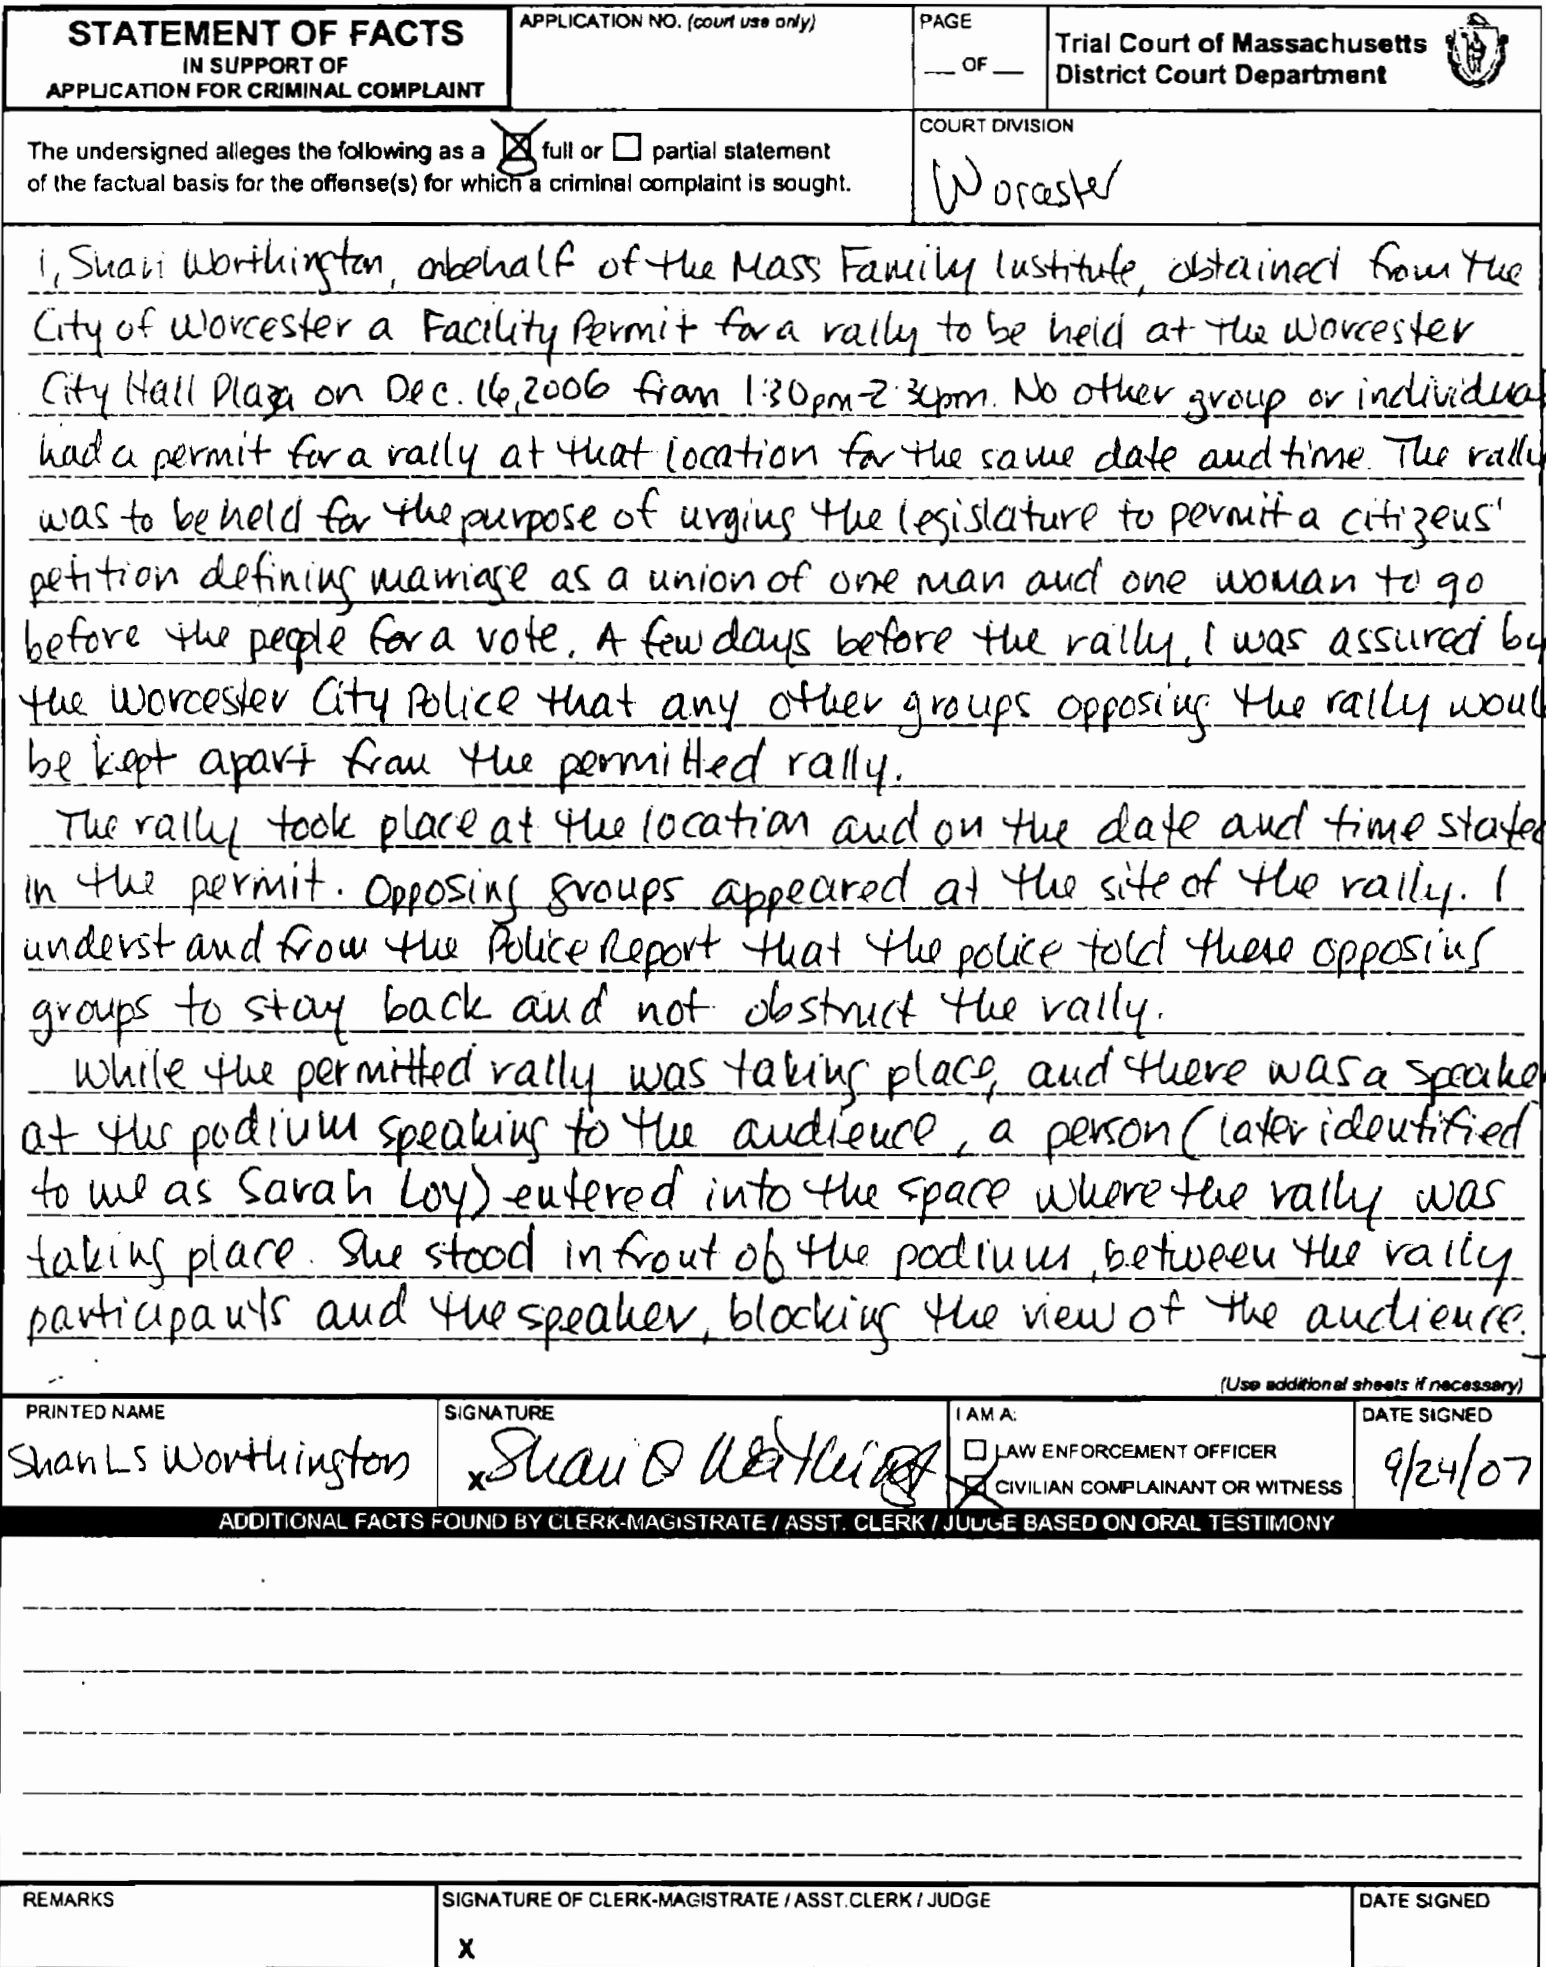 STATEMENT OF FACTS
IN SUPPORT OF
APPLICATION FOR CRIMINAL COMPLAINT
APPLICATION NO. (court use only)
PAGE
__ OF __
Trial Court of Massachusetts
District Court Department
The undersigned alleges the following as a ☒ full or ☐ partial statement
of the factual basis for the offense(s) for which a criminal complaint is sought.
COURT DIVISION
Worcester
I, Shari Worthington, onbehalf of the Mass Family Institute, obtained from the
City of Worcester a Facility Permit for a rally to be held at the Worcester
City Hall Plaza on Dec. 16, 2006 from 1:30pm-2:30pm. No other group or individual
had a permit for a rally at that location for the same date and time. The rally
was to be held for the purpose of urging the legislature to permit a citizens'
petition defining marriage as a union of one man and one woman to go
before the people for a vote. A few days before the rally, I was assured by
the Worcester City Police that any other groups opposing the rally woul
be kept apart from the permitted rally.
The rally took place at the location and on the date and time stated
in the permit. Opposing groups appeared at the site of the rally. I
understand from the Police Report that the police told these opposing
groups to stay back and not obstruct the rally.
While the permitted rally was taking place, and there was a speake
at the podium speaking to the audience, a person (later identified
to me as Sarah Loy) entered into the space where the rally was
taking place. She stood in front of the podium, between the rally
participants and the speaker, blocking the view of the audience.
(Use additional sheets if necessary)
PRINTED NAME
Worthington
SIGNATURE
x Shari Worthington
I AM A:
☐ LAW ENFORCEMENT OFFICER
☒ CIVILIAN COMPLAINANT OR WITNESS
DATE SIGNED
9/24/07
ADDITIONAL FACTS FOUND BY CLERK-MAGISTRATE / ASST. CLERK / JUDGE BASED ON ORAL TESTIMONY
REMARKS
SIGNATURE OF CLERK-MAGISTRATE / ASST.CLERK / JUDGE
X
DATE SIGNED